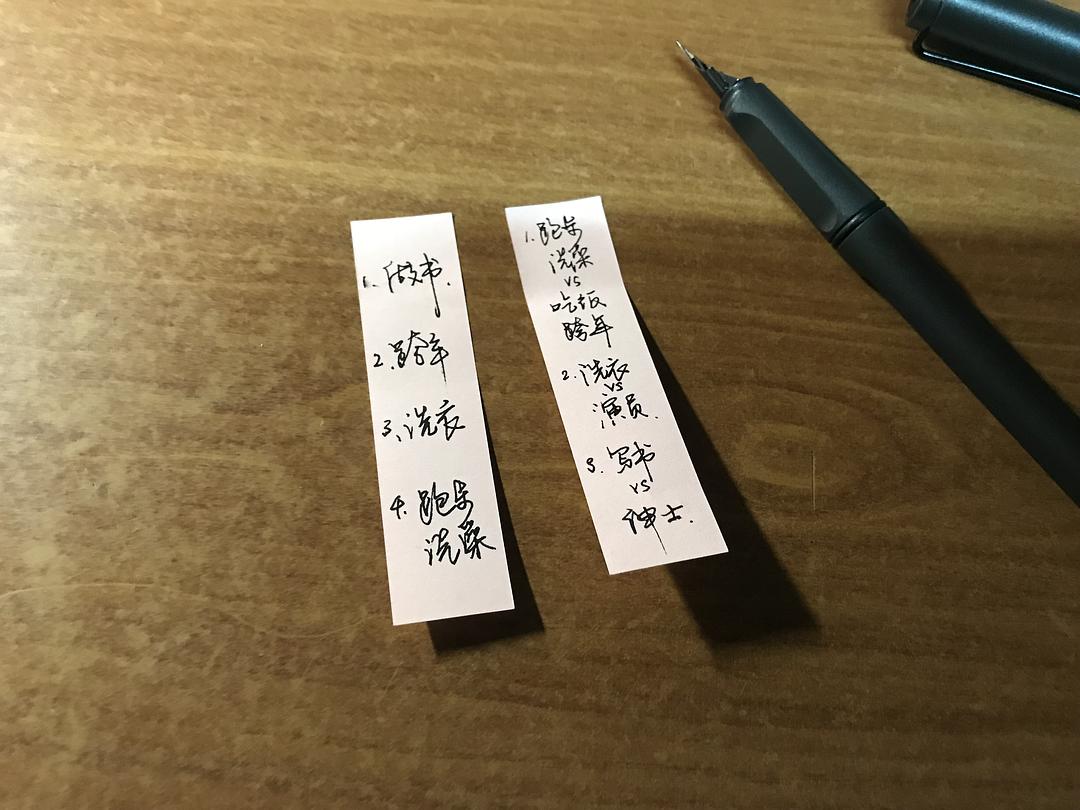 1. 做书.
2. 跨年
3、洗衣
4. 跑步
洗澡
1. 跑步
洗澡
vs
吃饭
跨年
2. 洗衣
vs
演员.
3. 写书
vs
绅士.